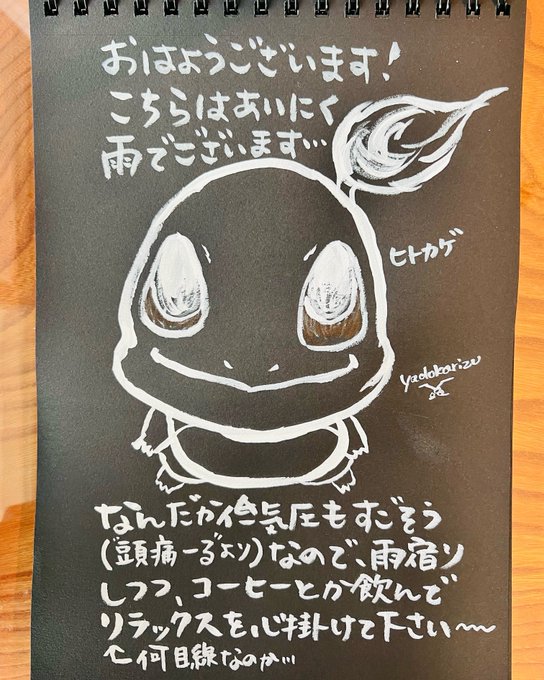 おはようございます!
こちらはあいにく
雨でございます…
ヒトカゲ
yadokarizu
なんだか低気圧もすごそう
(頭痛ーるより)なので、雨宿り
しつつ、コーヒーとか飲んで
リラックスを心掛けて下さい〜
↑何目線なのか…